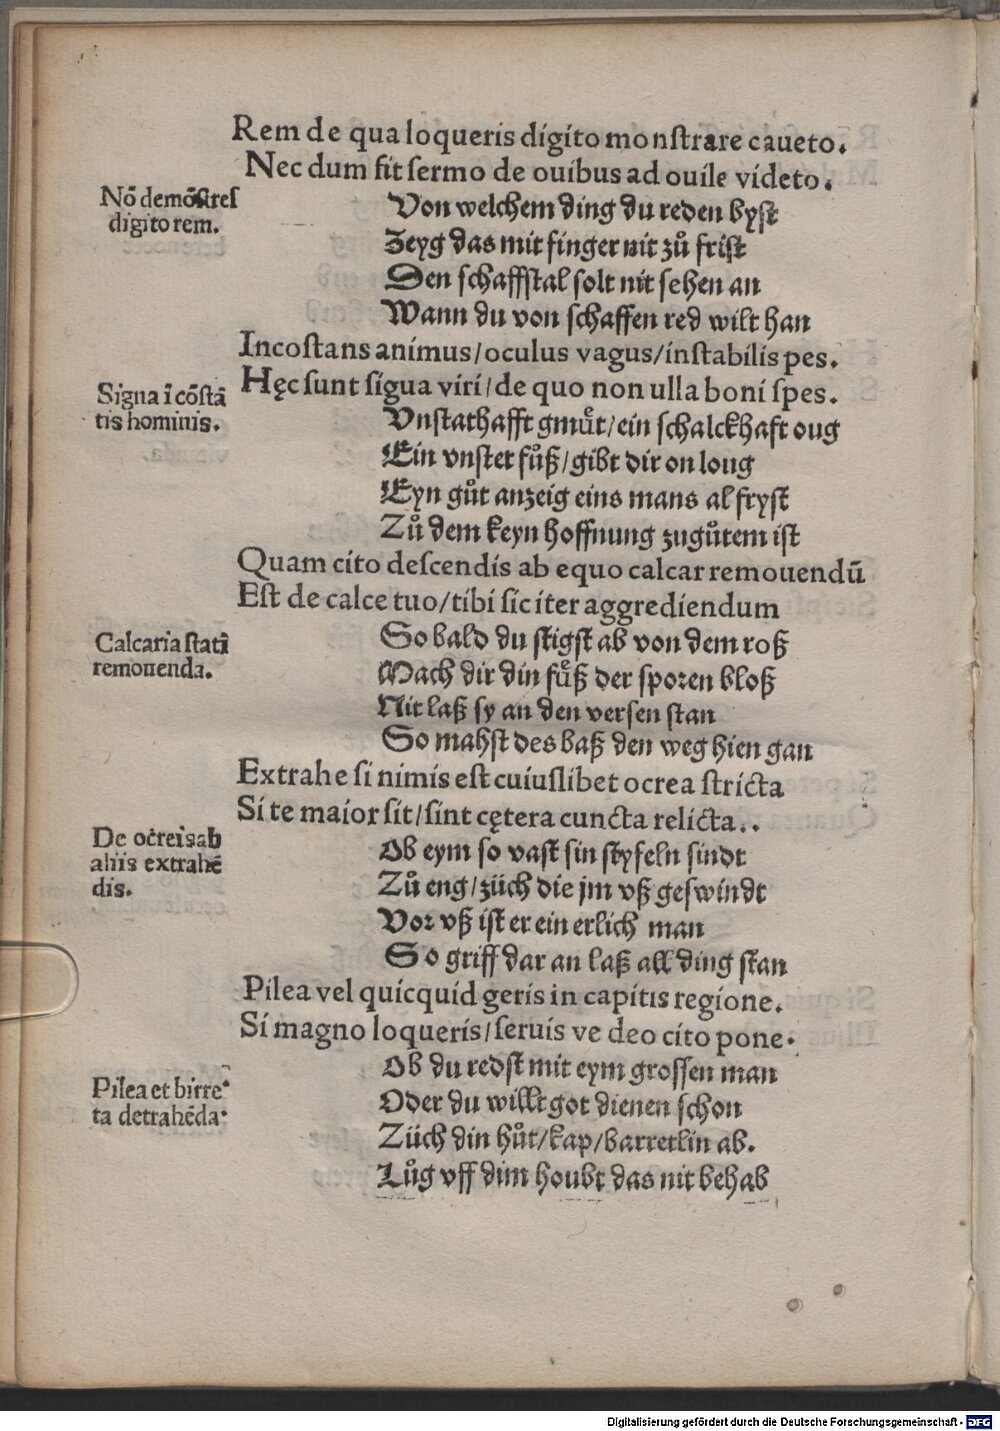 Rem de qua loqueris digito monstrare caueto.
Nec dum sit sermo de ouibus ad ouile videto.
Nō demōstres
digito rem.
Von welchem ding du reden byst
Zeyg das mit finger nit zů frist
Den schaffstal solt nit sehen an
Wann du von schaffen red wilt han
Incostans animus/oculus vagus/instabilis pes.
Hęc sunt sigua viri/de quo non ulla boni spes.
Signa ī cōstā
tis hominis.
Vnstathafft gmuͤt/ein schalckhaft oug
Ein vnstet fuͤß/gibt dir on loug
Eyn gůt anzeig eins mans al fryst
Zů dem keyn hoffnung zugůtem ist
Quam cito descendis ab equo calcar remouendū
Est de calce tuo/tibi sic iter aggrediendum
Calcaria statī
remouenda.
So bald du stigst ab von dem roß
Mach dir din fuͤß der sporen bloß
Nit laß sy an den versen stan
So mahst des baß den weg hien gan
Extrahe si nimis est cuiuslibet ocrea stricta
Si te maior sit/sint cętera cuncta relicta..
De ocreis ab
aliis extrahē
dis.
Ob eym so vast sin styfeln sindt
Zů eng/züch die jm vß geswindt
Vor vß ist er ein erlich man
So griff dar an laß all ding stan
Pilea vel quicquid geris in capitis regione.
Si magno loqueris/seruis ve deo cito pone.
Pilea et birre
ta detrahēda.
Ob du redst mit eym grossen man
Oder du willt got dienen schon
Züch din hůt/kap/barretlin ab.
Lůg vff dim houbt das nit behab
Digitalisierung gefördert durch die Deutsche Forschungsgemeinschaft - DFG